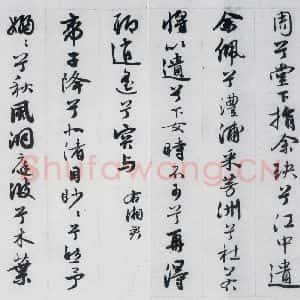 周兮堂下捐余玦兮江中遺
余佩兮澧浦采芳洲兮杜若
將以遺兮下女時不可兮再得
聊逍遙兮容与 右湘君
帝子降兮北渚目眇〻兮愁予
嫋〻兮秋風洞庭波兮木葉
Shufawang.CN